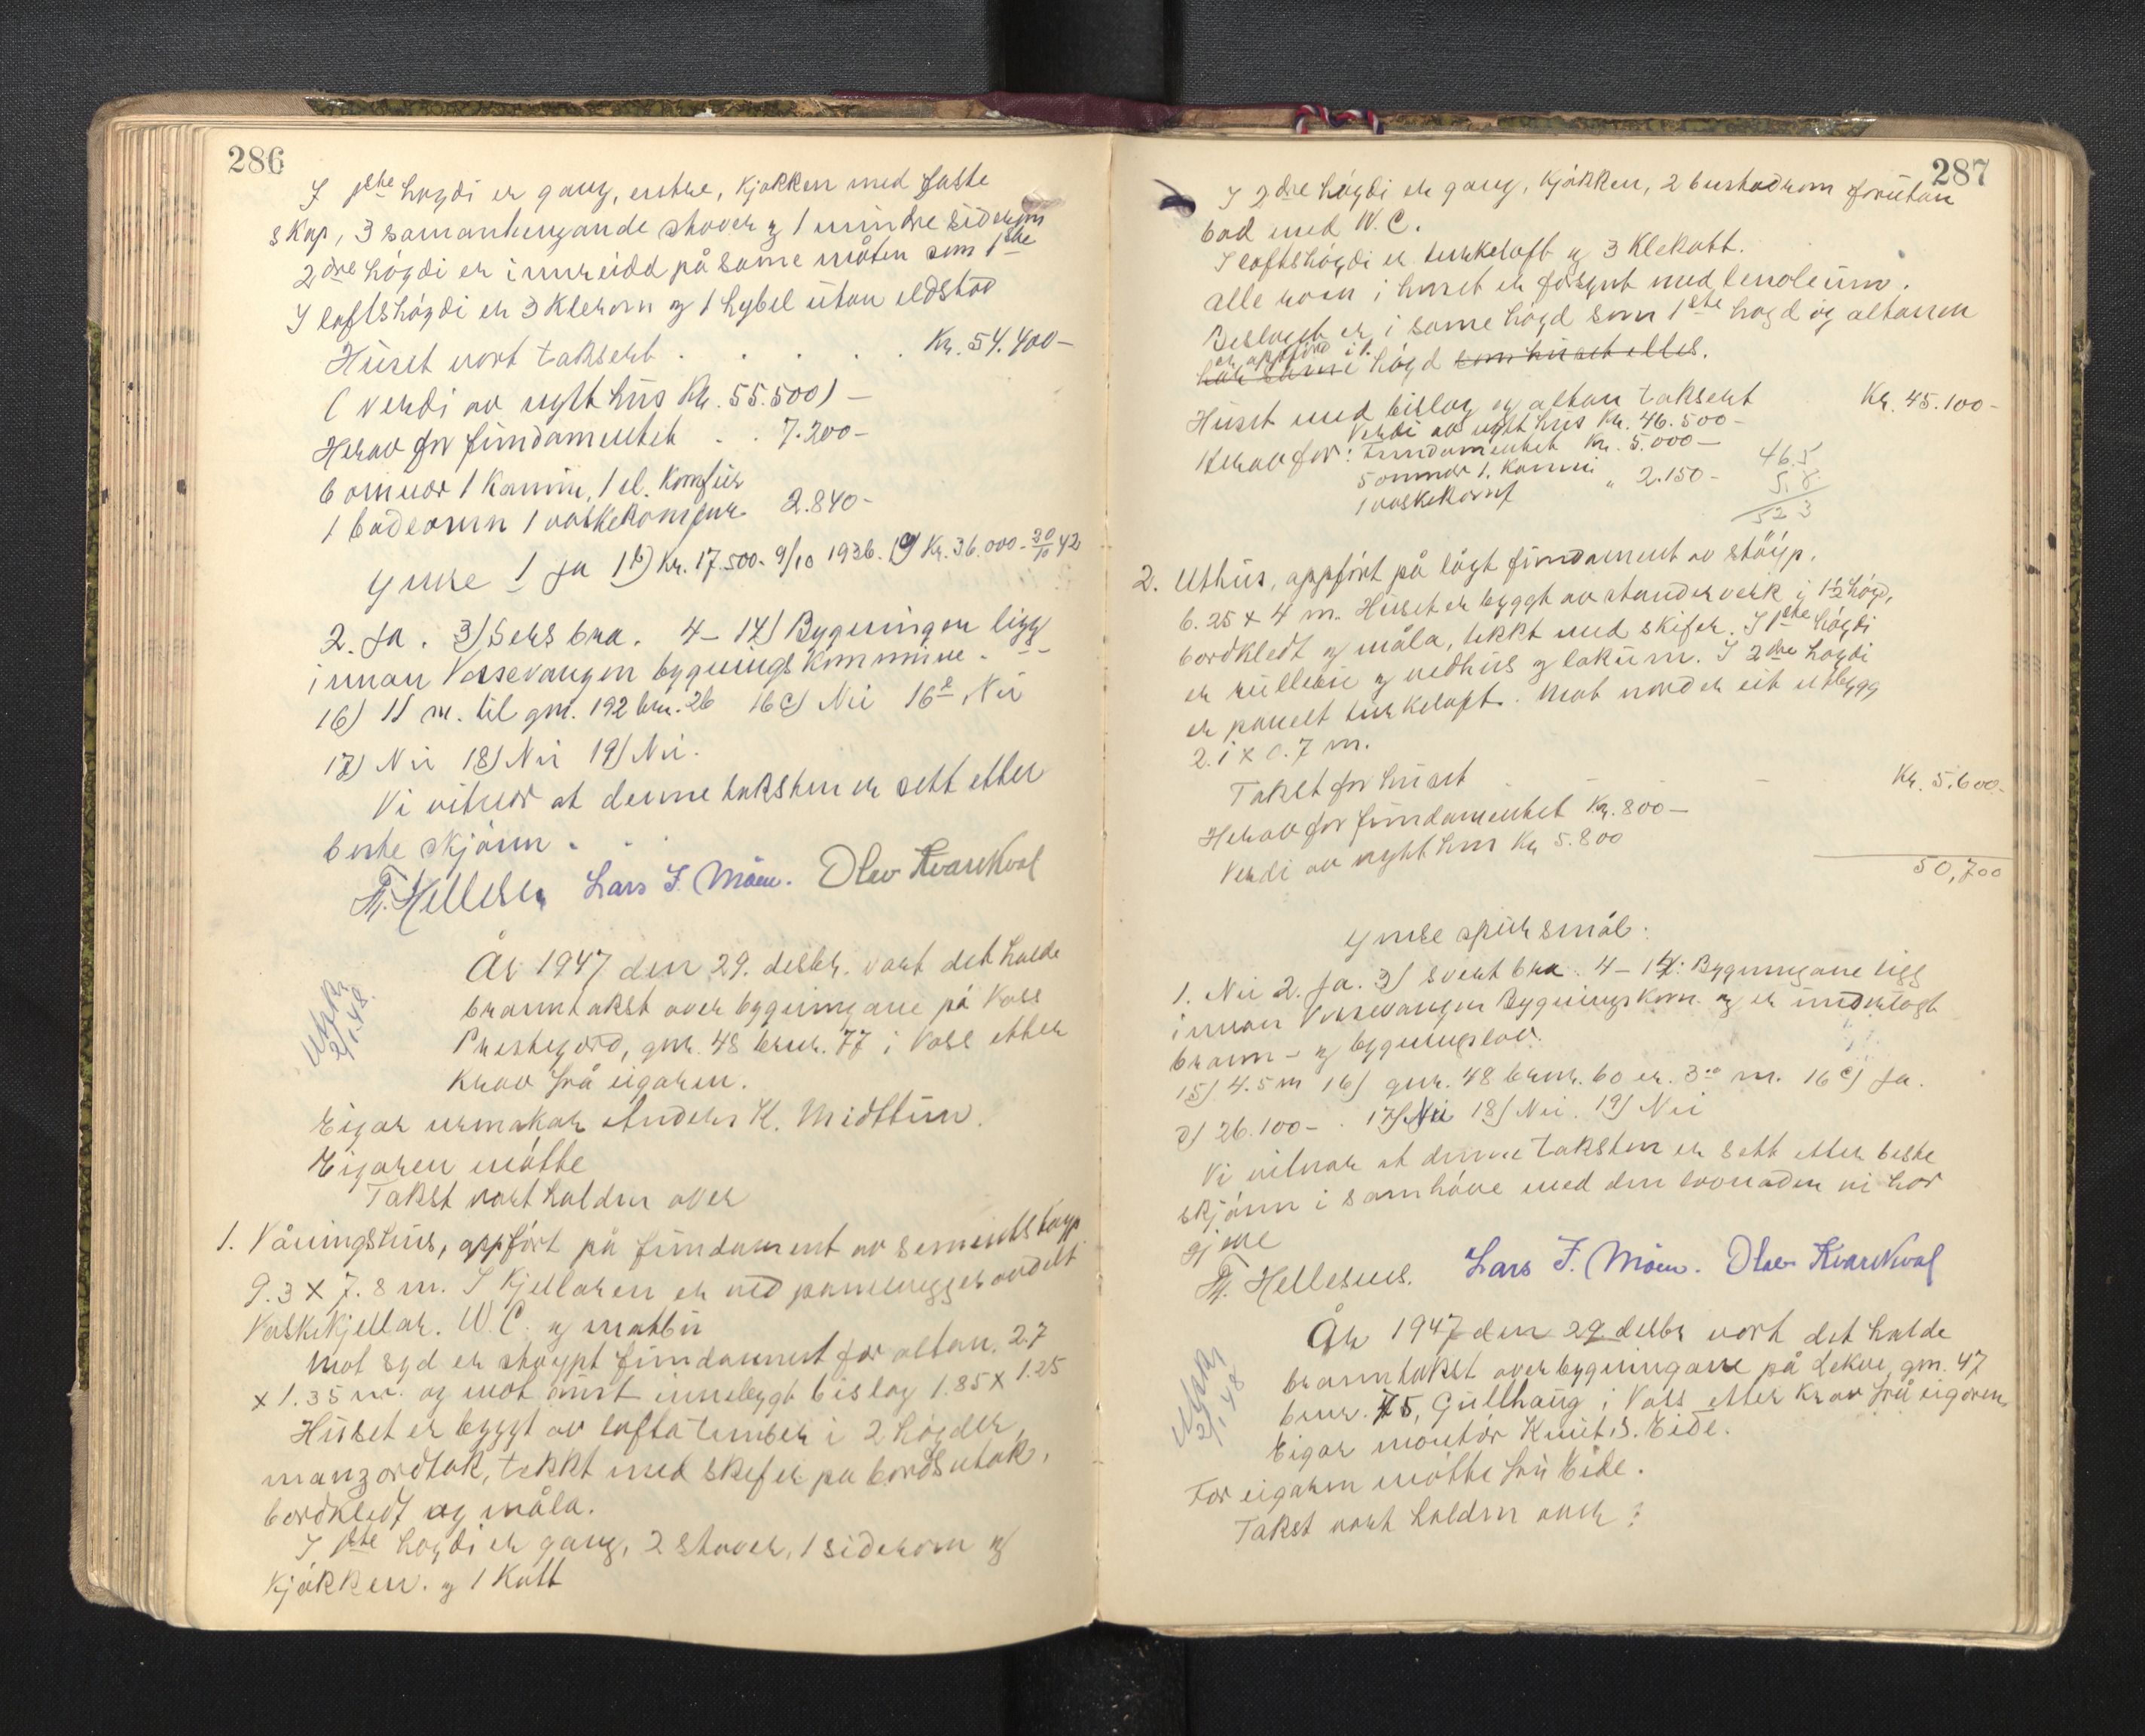 286
I 1ste høgdi er gang, entre, kjøkken med faste
skap, 3 samanhengande stover og 1 mindre siderom
2dre høgdi er innreidd på same måten som 1ste
I loftshøgdi er 3 klerom og 1 hybel utan eldstad
Huset vart taksert . . . . . Kr. 54.400-
(Verdi av nytt hus Kr. 55.500) -
Herav for fundamentet . . 7.200-
6 omnar 1 kamin, 1 el. komfur
1 badeomn 1 vaskekomfyr 2.840-
Ymse 1 Ja 1b) Kr. 17.500- 9/10 1936. Kr. 36.000- 30/10 42
2. Ja. 3) Sers bra. 4-14) Bygningen ligg
innan Vossevangen bygningskommune.
16) 11 m. til gnr. 192 bnr. 26 16c) Nei 16d Nei
17) Nei 18) Nei 19) Nei.
Vi vitnar at denne taksten er sett etter
beste skjønn.
Lars J. Möen. Olav Kvarekval
År 1947 den 29. desbr. vart det halde
branntakst over bygningane på Voss
Prestegard, gnr. 48 bnr. 77 i Voss etter
krav frå eigaren.
2/1.48.
Eigar urmakar Anders K. Midttun.
Eigaren møtte
Takst vart halden over
1. Våningshus, oppført på fundament av sementstøyp
9.3 x 7.8 m. I kjellaren er ved panelvegger avdelt
Vaskekjellar. W.C. og matbu
Mot syd er støypt fundament for altan, 2.7
x 1.35 m. og mot aust innebygt bislag 1.85 x 1.25
Huset er bygt av loftatimber i 2 høgder,
manzardtak, tekt med skifer på bordsutak,
bordkledt og måla.
I 1ste høgdi er gang, 2 stover, 1 siderom og
kjøkken. og 1 kott
287
I 2dre høgdi er gang, kjøkken, 2 burhadrom forutan
bad med W.C.
I loftshøgdi er turkeloft og 3 klekott.
Alle rom i huset er forsynt med lenoleum.
Beslaget er i same høgd som 1ste høgd og altanen
er oppførd i 1.
har same høgd som huset elles.
Huset med bislag og altan taksert Kr. 45.100-
Verdi av nytt hus Kr. 46.500-
Herav for: Fundamentet Kr. 5.000-
5 omnar 1. kamin
1 vaskekomf " 2.150-
46.5
5.8
52 3
2. Uthus, oppført på lågt fundament av støyp.
6.25 x 4 m. Huset er byggt av standerverk i 1½ høgd,
bordkledt og måla, tekkt med skifer. I 1ste høgdi
er rullebu og vedhus og lokum. I 2dre høgdi
er panelt turkeloft. Mot nord er eit utbygg
2.1 x 0.7 m.
Takst for huset - - Kr. 5.600-
Herav for fundamentet Kr. 800-
Verdi av nytt hus Kr 5.800
50,700
Ymse spursmål:
1. Nei 2. Ja. 3) Svert bra. 4-14: Bygningane ligg
innan Vossevangen Bygningskom. og er underlagt
brann- og bygningslov.
15) 4.5 m 16) gnr. 48 bnr. 60 er. 3.00 m. 16c) Ja.
d) 26.100-. 17) Nei 18) Nei. 19) Nei
Vi vitnar at denne taksten er sett etter beste
skjønn i samhøve med den lovnaden vi har
gjeve
Lars J. Möen. Olav Kvarekval
År 1947 den 29 desbr vart det halde
branntakst over bygningane på Lekve, gnr. 47
bnr. 75, Gullhaug i Voss etter krav frå eigaren,
2/1.48
Eigar montør Knut S. Eide.
For eigaren møtte fru Eide.
Takst vart halden over: